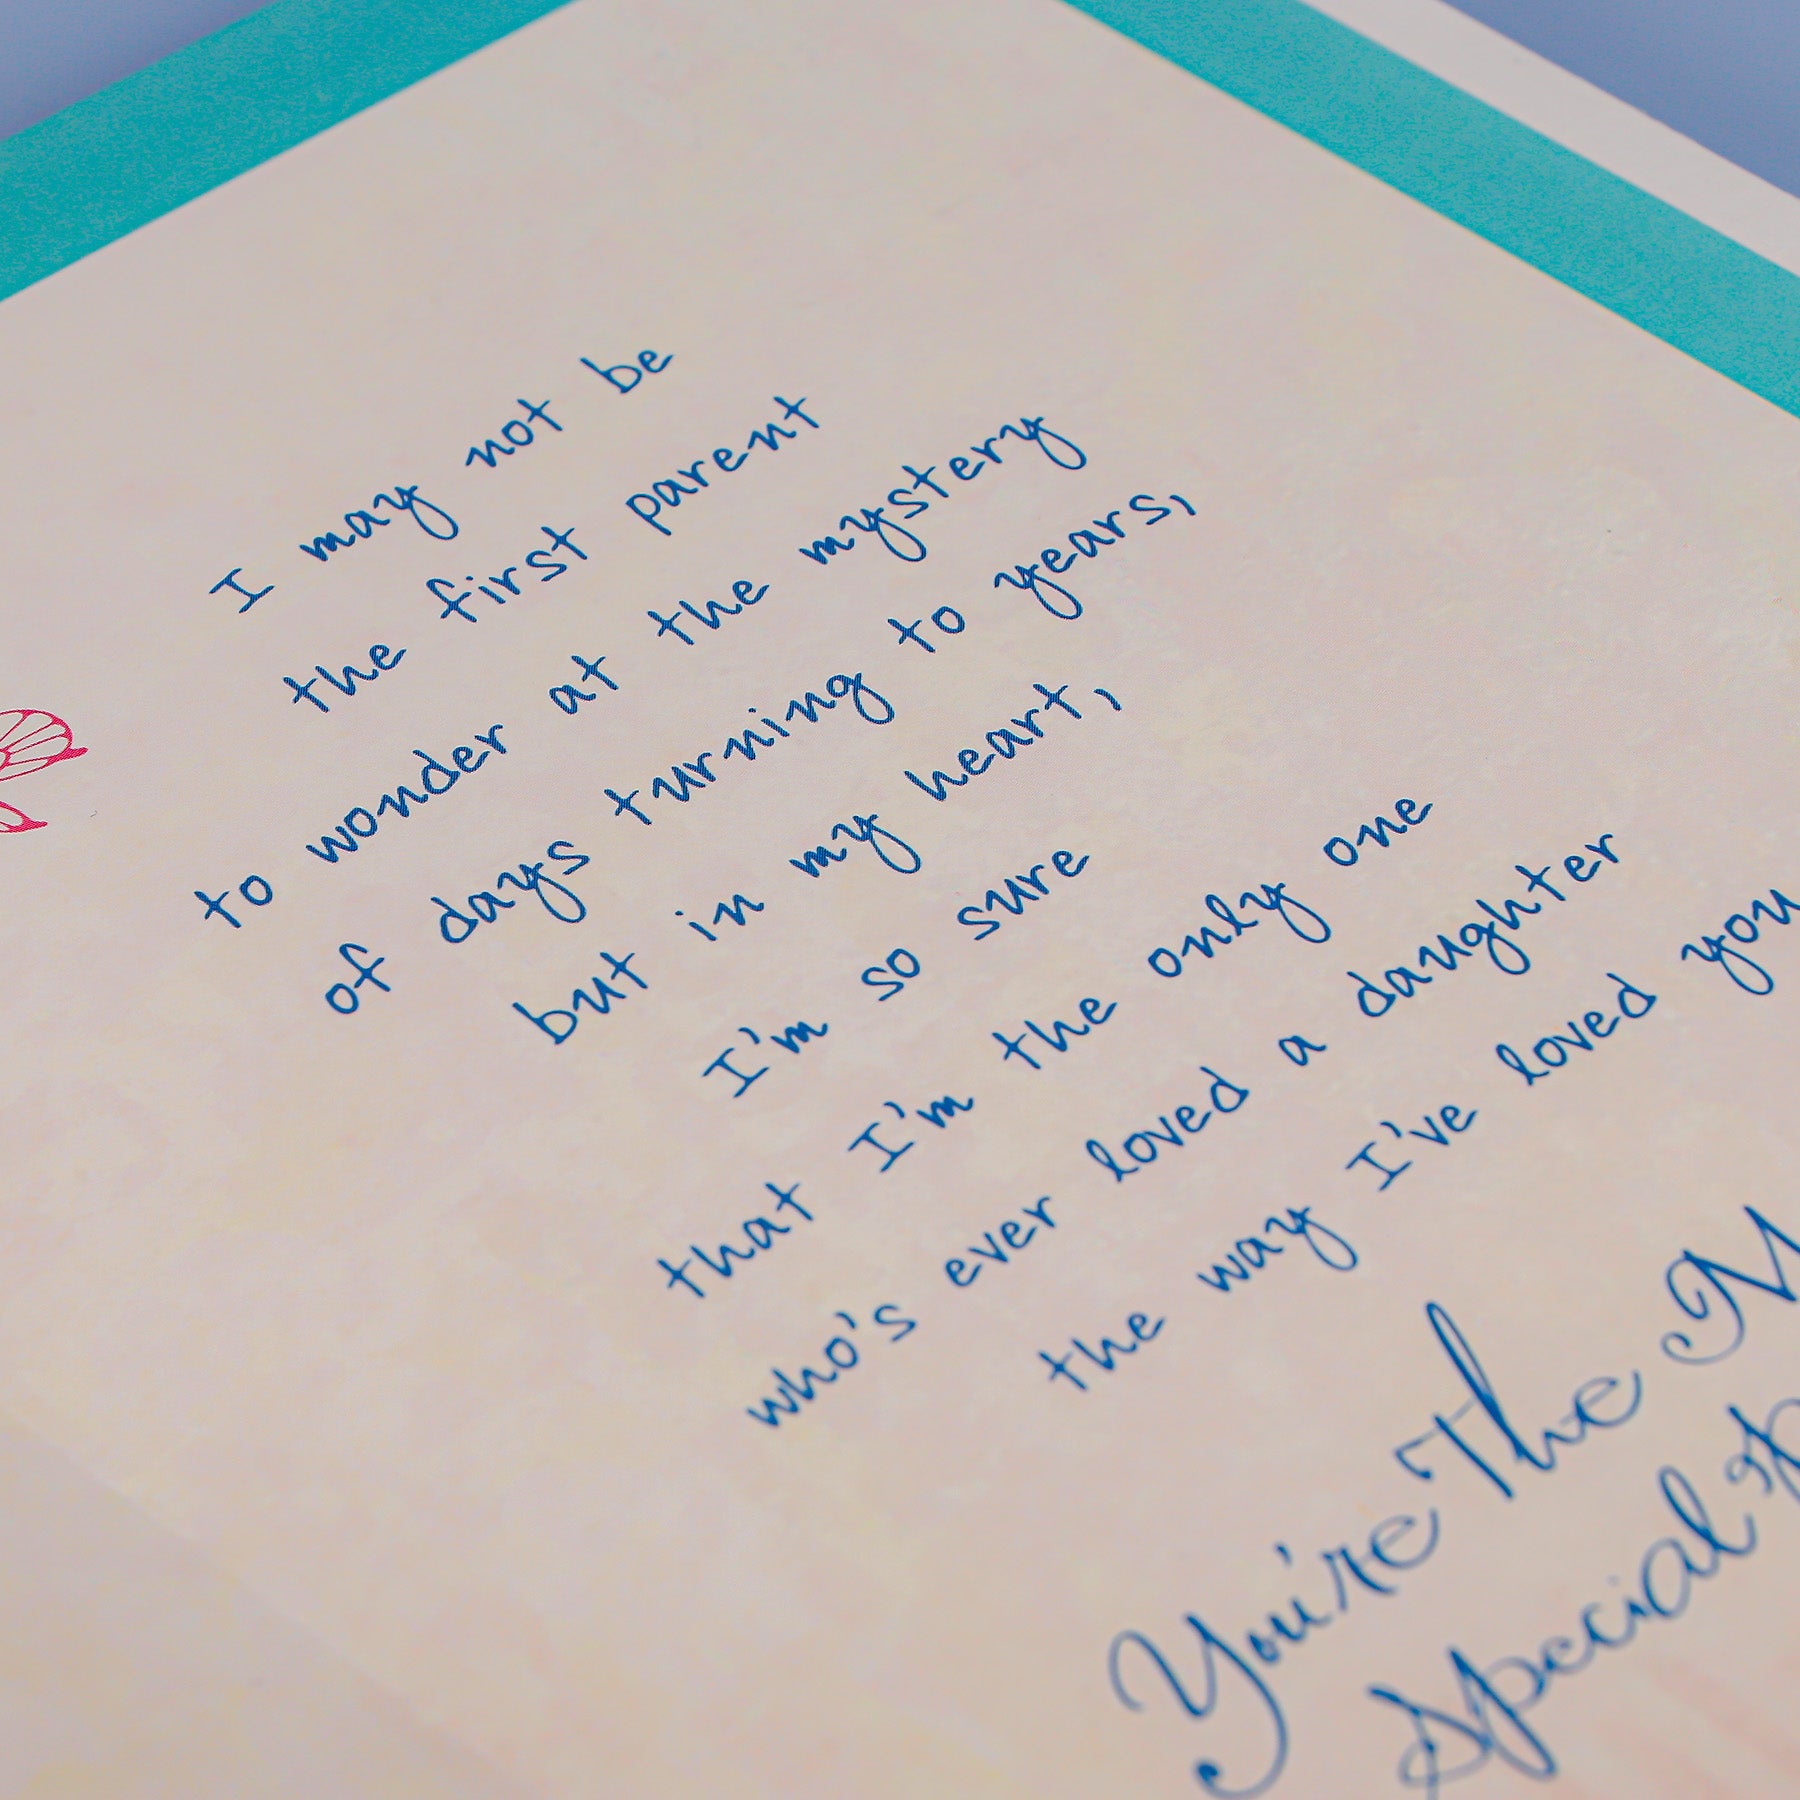 I may not be
the first parent
to wonder at the mystery
of days turning to years,
but in my heart,
I'm so sure
that I'm the only one
who's ever loved a daughter
the way I've loved you
You're The
Special